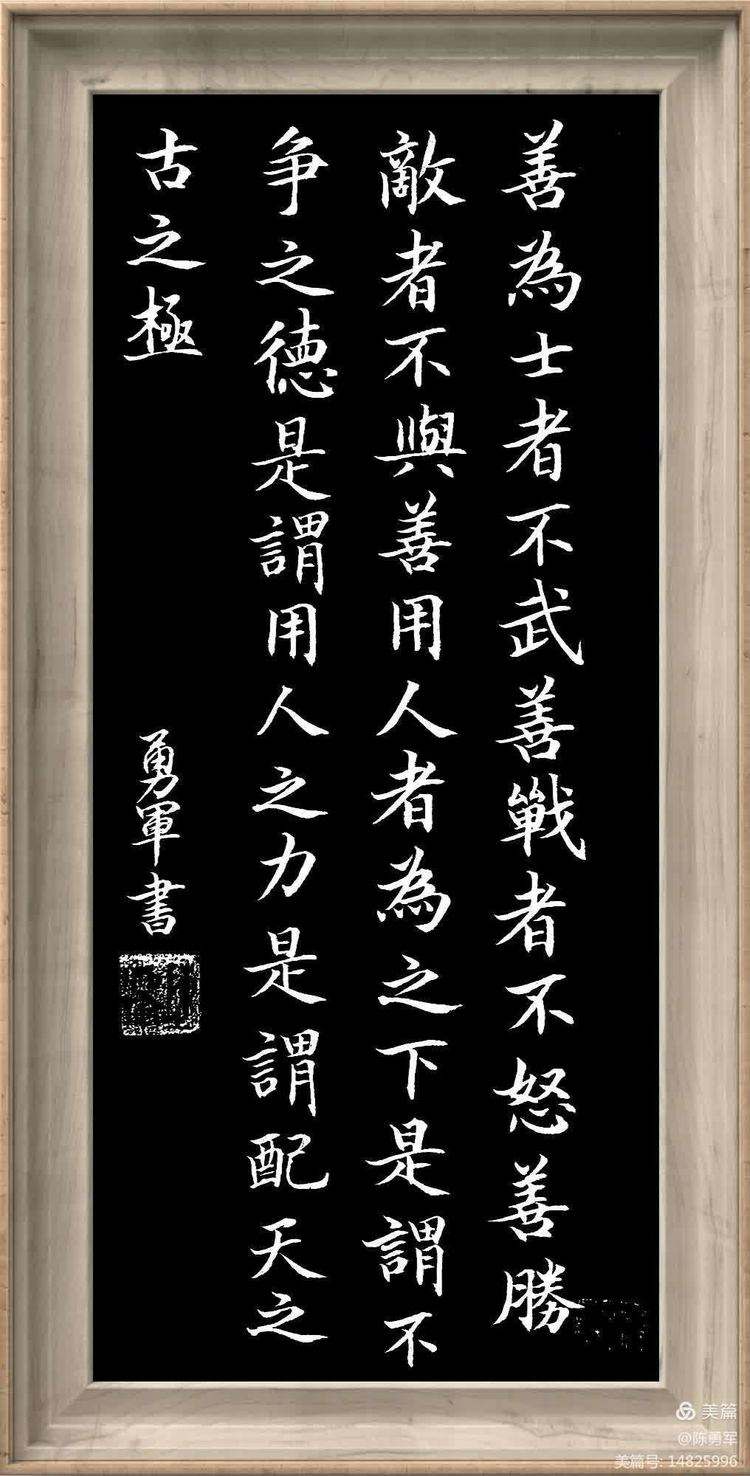 善為士者不武善戰者不怒善勝
敵者不與善用人者為之下是謂不
争之德是謂用人之力是謂配天之
古之極
勇軍書
美篇
@陈勇军
美篇号: 14825996